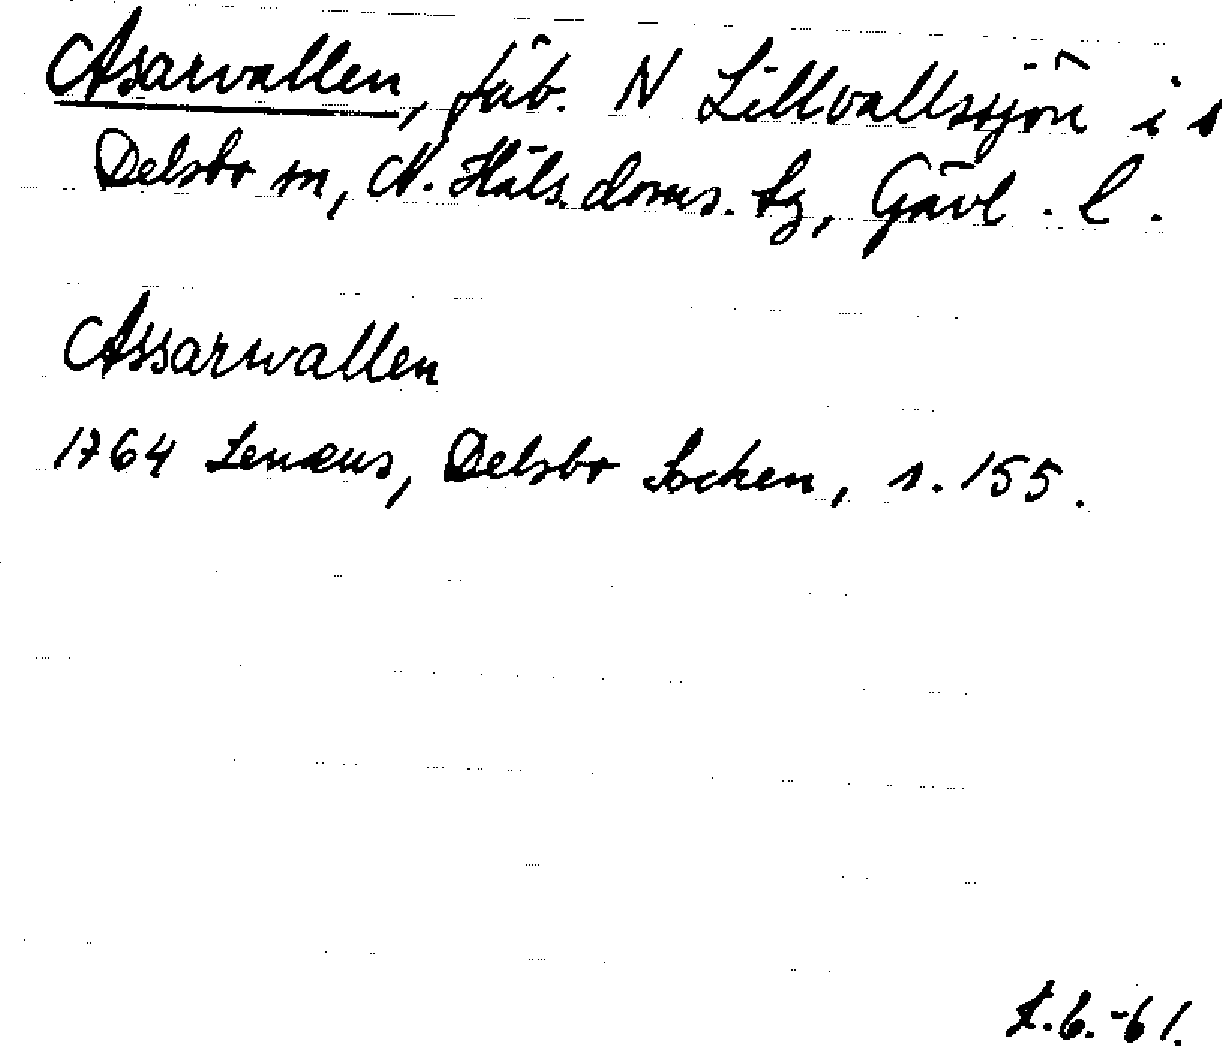 Asarvallen, fäb. N Lillvallssjön i s
Delsbo sn, N. Häls. doms. tg, Gävl. l.
Assarwallen
1764 Lenæus, Delsbo Socken, s. 155.
L.6.-61.